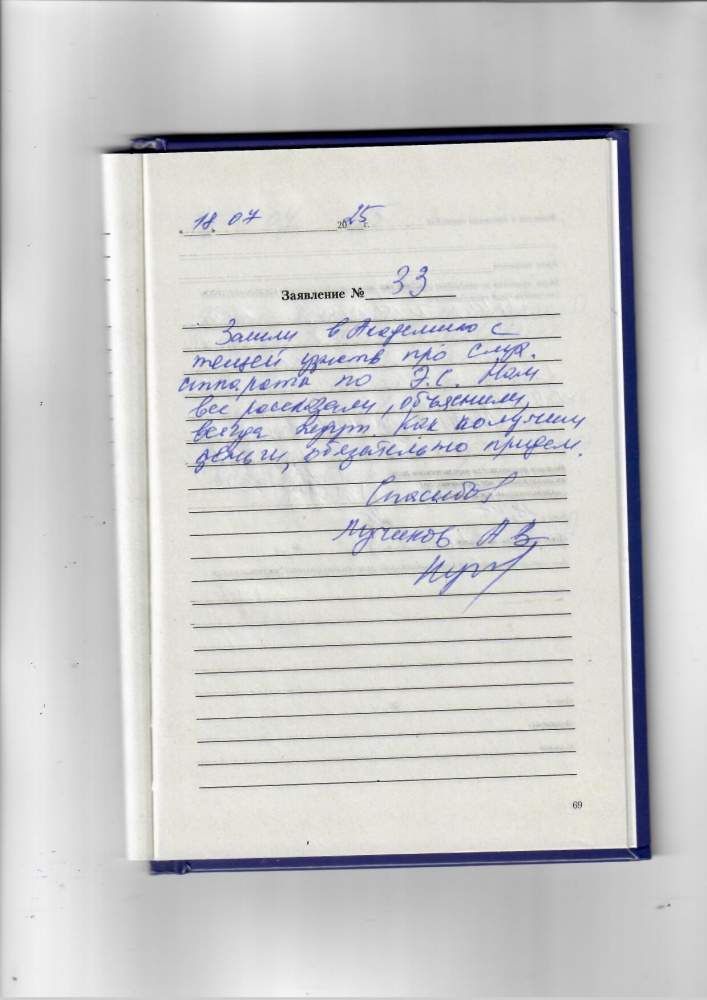 «18» 07 2025 г.
Заявление № 33
Зашли в Академию с
тещей узнать про слух.
аппараты по Э.С. Нам
все рассказали, объяснили,
всегда Как получим
деньги, обязательно придем.
Спасибо,
А В
69